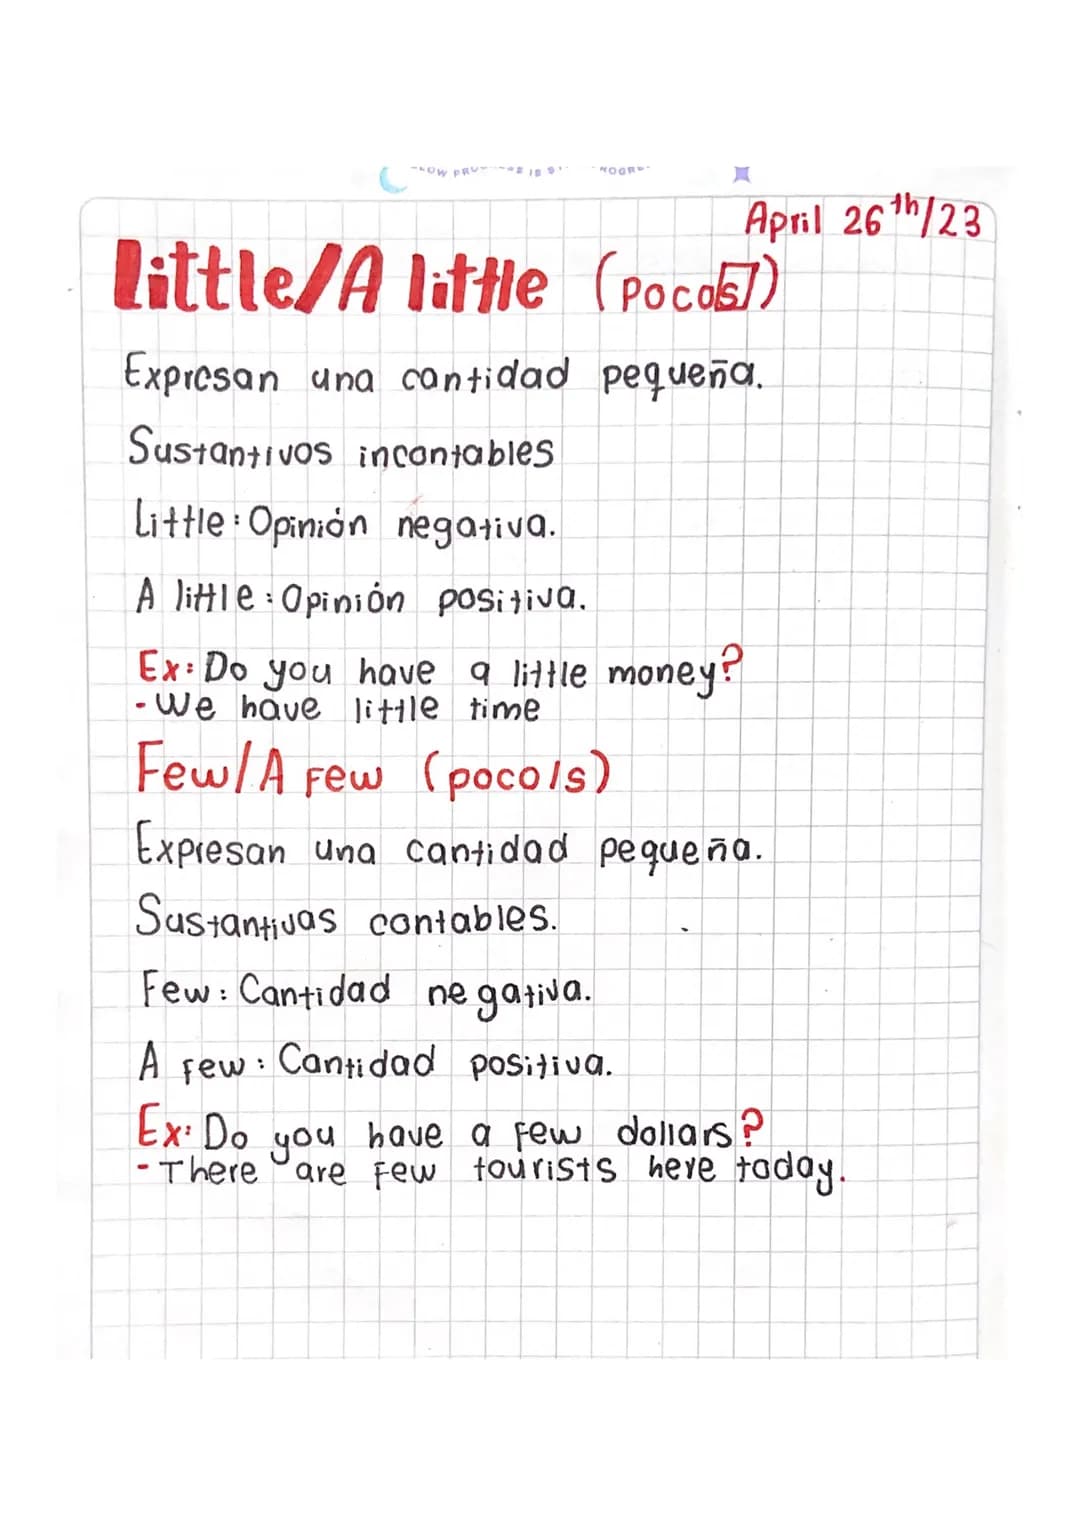 April 26th/23
Little/A little (pocos)
Expresan una cantidad pequeña.
Sustantivos incontables
Little: Opinión negativa.
A little: Opinión positiva.
Ex: Do you have a little money?
- We have little time
Few/A few (poco/s)
Expresan una cantidad pequeña.
Sustantivas contables.
Few: Cantidad negativa.
A few: Cantidad positiva.
Ex: Do you have a few dollars?
- There are few tourists here today.